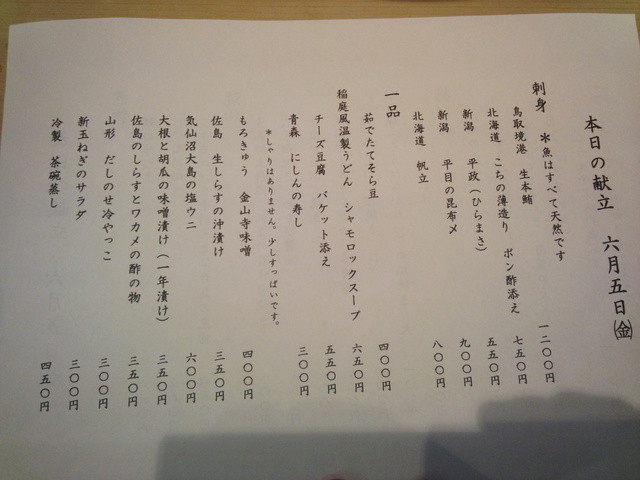 本日の献立 六月五日㈮
刺身 *魚はすべて天然です
鳥取境港 生本鮪 一二〇〇円
北海道 こちの薄造り ポン酢添え 七五〇円
新潟 平政（ひらまさ） 五五〇円
新潟 平目の昆布〆 九〇〇円
北海道 帆立 八〇〇円
一品
茹でたてそら豆 四〇〇円
稲庭風温製うどん シャモロックスープ 六五〇円
チーズ豆腐 バケット添え 五五〇円
青森 にしんの寿し 三〇〇円
*しゃりはありません。少しすっぱいです。
もろきゅう 金山寺味噌 四〇〇円
佐島 生しらすの沖漬け 三五〇円
気仙沼大島の塩ウニ 六〇〇円
大根と胡瓜の味噌漬け（一年漬け） 三五〇円
佐島のしらすとワカメの酢の物 三五〇円
山形 だしのせ冷やっこ 三〇〇円
新玉ねぎのサラダ 三〇〇円
冷製 茶碗蒸し 四五〇円